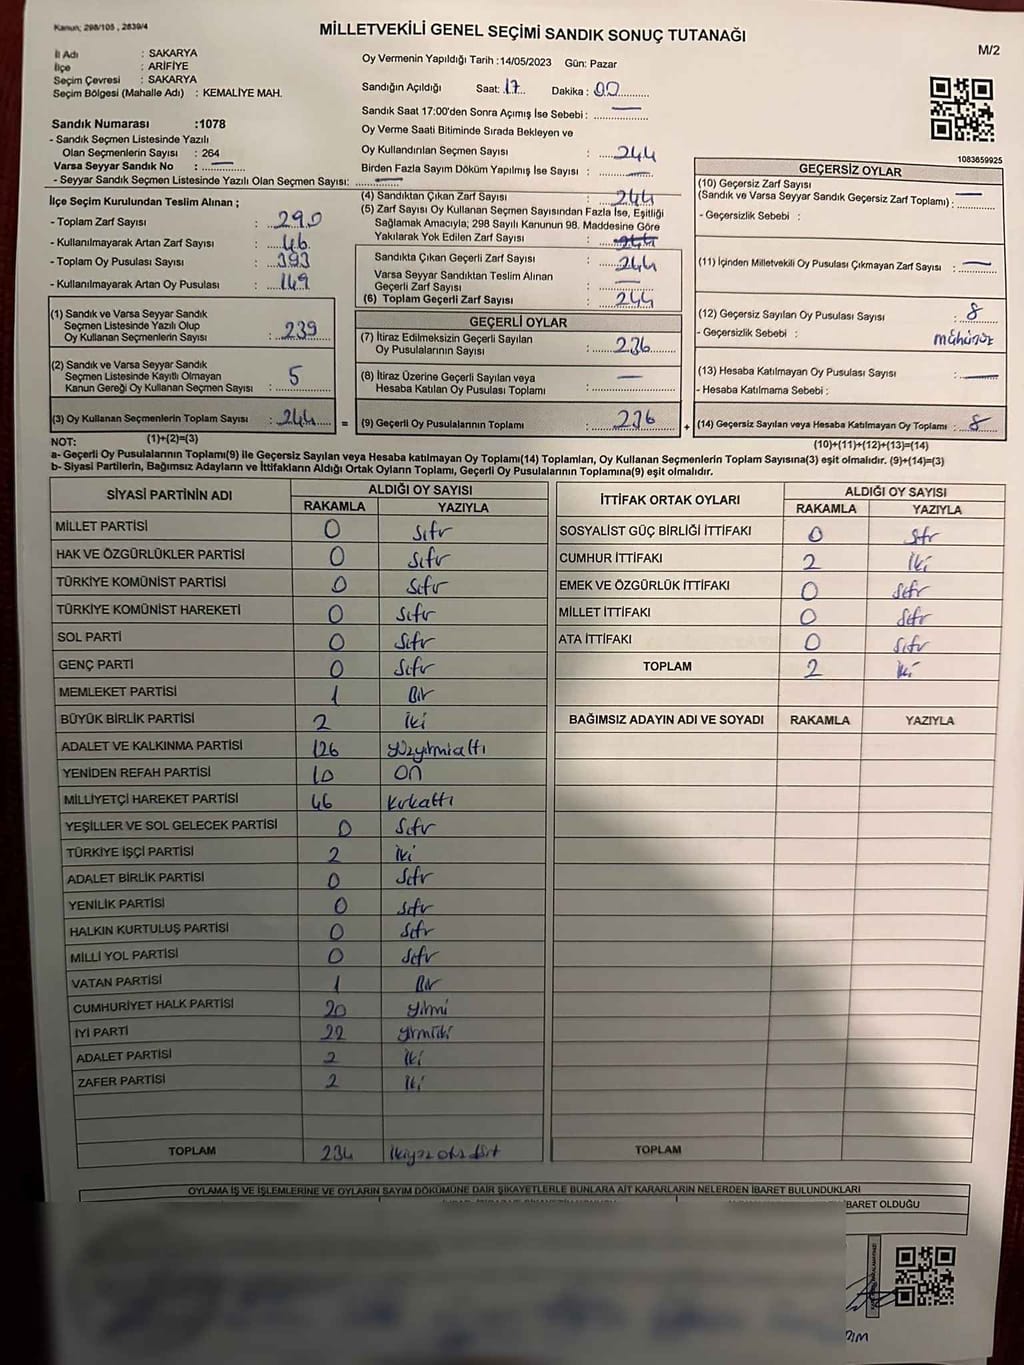 Kanun; 298/105 , 2839/4
MİLLETVEKİLİ GENEL SEÇİMİ SANDIK SONUÇ TUTANAĞI
M/2
İl Adı : SAKARYA
İlçe : ARİFİYE
Seçim Çevresi : SAKARYA
Seçim Bölgesi (Mahalle Adı) : KEMALİYE MAH.
Sandık Numarası :1078
- Sandık Seçmen Listesinde Yazılı
Olan Seçmenlerin Sayısı : 264
Varsa Seyyar Sandık No : —
- Seyyar Sandık Seçmen Listesinde Yazılı Olan Seçmen Sayısı: —
İlçe Seçim Kurulundan Teslim Alınan ;
- Toplam Zarf Sayısı : 290
- Kullanılmayarak Artan Zarf Sayısı : 46
- Toplam Oy Pusulası Sayısı : 393
- Kullanılmayarak Artan Oy Pusulası : 149
(1) Sandık ve Varsa Seyyar Sandık
Seçmen Listesinde Yazılı Olup
Oy Kullanan Seçmenlerin Sayısı : 239
(2) Sandık ve Varsa Seyyar Sandık
Seçmen Listesinde Kayıtlı Olmayan
Kanun Gereği Oy Kullanan Seçmen Sayısı : 5
(3) Oy Kullanan Seçmenlerin Toplam Sayısı : 244 =
Oy Vermenin Yapıldığı Tarih :14/05/2023 Gün: Pazar
Sandığın Açıldığı Saat: 17 Dakika : 00
Sandık Saat 17:00'den Sonra Açımış İse Sebebi : —
Oy Verme Saati Bitiminde Sırada Bekleyen ve
Oy Kullandırılan Seçmen Sayısı : 244
Birden Fazla Sayım Döküm Yapılmış İse Sayısı : —
(4) Sandıktan Çıkan Zarf Sayısı : 244
(5) Zarf Sayısı Oy Kullanan Seçmen Sayısından Fazla İse, Eşitliği
Sağlamak Amacıyla; 298 Sayılı Kanunun 98. Maddesine Göre
Yakılarak Yok Edilen Zarf Sayısı :
Sandıkta Çıkan Geçerli Zarf Sayısı : 244
Varsa Seyyar Sandıktan Teslim Alınan
Geçerli Zarf Sayısı : —
(6) Toplam Geçerli Zarf Sayısı : 244
GEÇERLİ OYLAR
(7) İtiraz Edilmeksizin Geçerli Sayılan
Oy Pusulalarının Sayısı : 236
(8) İtiraz Üzerine Geçerli Sayılan veya
Hesaba Katılan Oy Pusulası Toplamı : —
(9) Geçerli Oy Pusulalarının Toplamı : 236 +
1083659925
GEÇERSİZ OYLAR
(10) Geçersiz Zarf Sayısı
(Sandık ve Varsa Seyyar Sandık Geçersiz Zarf Toplamı) : —
- Geçersizlik Sebebi :
(11) İçinden Milletvekili Oy Pusulası Çıkmayan Zarf Sayısı : —
(12) Geçersiz Sayılan Oy Pusulası Sayısı : 8
- Geçersizlik Sebebi : mühürsüz
(13) Hesaba Katılmayan Oy Pusulası Sayısı : —
- Hesaba Katılmama Sebebi :
(14) Geçersiz Sayılan veya Hesaba katılmayan Oy Toplamı : 8
NOT: (1)+(2)=(3) (10)+(11)+(12)+(13)=(14)
a- Geçerli Oy Pusulalarının Toplamı(9) ile Geçersiz Sayılan veya Hesaba katılmayan Oy Toplamı(14) Toplamları, Oy Kullanan Seçmenlerin Toplam Sayısına(3) eşit olmalıdır. (9)+(14)=(3)
b- Siyasi Partilerin, Bağımsız Adayların ve İttifakların Aldığı Ortak Oyların Toplamı, Geçerli Oy Pusulalarının Toplamına(9) eşit olmalıdır.
SİYASİ PARTİNİN ADI ALDIĞI OY SAYISI
RAKAMLA YAZIYLA
MİLLET PARTİSİ 0 Sıfır
HAK VE ÖZGÜRLÜKLER PARTİSİ 0 Sıfır
TÜRKİYE KOMÜNİST PARTİSİ 0 Sıfır
TÜRKİYE KOMÜNİST HAREKETİ 0 Sıfır
SOL PARTİ 0 Sıfır
GENÇ PARTİ 0 Sıfır
MEMLEKET PARTİSİ 1 Bir
BÜYÜK BİRLİK PARTİSİ 2 İki
ADALET VE KALKINMA PARTİSİ 126 yüzyirmialtı
YENİDEN REFAH PARTİSİ 10 On
MİLLİYETÇİ HAREKET PARTİSİ 46 kırkaltı
YEŞİLLER VE SOL GELECEK PARTİSİ 0 Sıfır
TÜRKİYE İŞÇİ PARTİSİ 2 İki
ADALET BİRLİK PARTİSİ 0 Sıfır
YENİLİK PARTİSİ 0 Sıfır
HALKIN KURTULUŞ PARTİSİ 0 Sıfır
MİLLİ YOL PARTİSİ 0 Sıfır
VATAN PARTİSİ 1 Bir
CUMHURİYET HALK PARTİSİ 20 yirmi
İYİ PARTİ 22 yirmiiki
ADALET PARTİSİ 2 İki
ZAFER PARTİSİ 2 İki
TOPLAM 234 İkiyüz otuz dört
İTTİFAK ORTAK OYLARI ALDIĞI OY SAYISI
RAKAMLA YAZIYLA
SOSYALİST GÜÇ BİRLİĞİ İTTİFAKI 0 Sıfır
CUMHUR İTTİFAKI 2 İki
EMEK VE ÖZGÜRLÜK İTTİFAKI 0 Sıfır
MİLLET İTTİFAKI 0 Sıfır
ATA İTTİFAKI 0 Sıfır
TOPLAM 2 İki
BAĞIMSIZ ADAYIN ADI VE SOYADI RAKAMLA YAZIYLA
TOPLAM
OYLAMA İŞ VE İŞLEMLERİNE VE OYLARIN SAYIM DÖKÜMÜNE DAİR ŞİKAYETLERLE BUNLARA AİT KARARLARIN NELERDEN İBARET BULUNDUKLARI
İBARET OLDUĞU